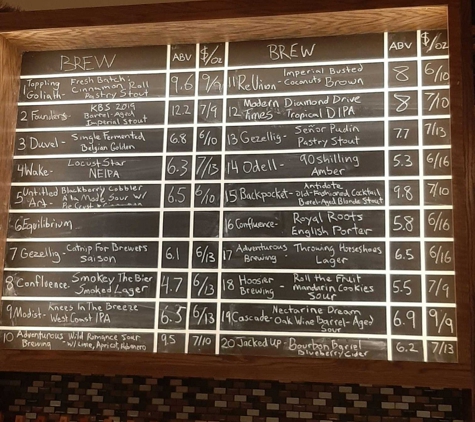 BREW ABV $/oz
1 Toppling Goliath- Fresh Batch: Cinnamon Roll Pastry Stout 9.6 9/9
2 Founders- KBS 2019 Barrel-Aged Imperial Stout 12.2 7/9
3 Duvel- Single Fermented Belgian Golden 6.8 6/10
4 Wake- Locust Star NEIPA 6.3 7/13
5 Untitled Art- Blackberry Cobbler, A la Mode Sour w/ Pie Crust + Cinnamon 6.5 6/10
6 Equilibrium
7 Gezellig- Catnip For Brewers Saison 6.1 6/13
8 Confluence- Smokey The Bier Smoked Lager 4.7 6/13
9 Modist- Knees In The Breeze West Coast IPA 6.5 6/13
10 Adventurous Brewing Wild Romance Sour w/ Lime, Apricot, Habanero 9.5 7/10
BREW ABV $/oz
11 ReUnion- Imperial Busted Coconuts Brown 8 6/10
12 Modern Times- Diamond Drive Tropical DIPA 8 7/10
13 Gezellig- Señor Pudin Pastry Stout 7.7 7/13
14 Odell- 90 shilling Amber 5.3 6/16
15 Backpocket- Antidote Old-Fashioned Cocktail Barrel-Aged Blonde Stout 9.8 7/10
16 Confluence- Royal Roots English Porter 5.8 6/16
17 Adventurous Brewing- Throwing Horseshoes Lager 6.5 6/16
18 Hoosier Brewing- Roll the Fruit Mandarin Cookies Sour 5.5 7/9
19 Cascade- Nectarine Dream Oak Wine Barrel-Aged Sour 6.9 9/9
20 Jacked Up- Bourbon Barrel Blueberry Cider 6.2 7/13